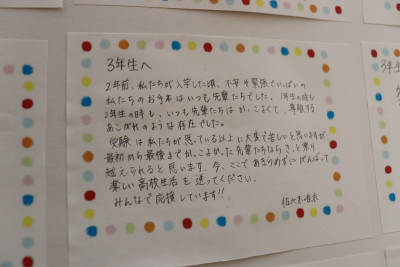 3年生へ
2年前、私たちが入学した頃、不安や緊張でいっぱいの
私たちのお手本はいつも先輩たちでした。1年生の時も
2年生の時も、いつも先輩たちはかっこよくて、尊敬する
あこがれのような存在でした。
受験は私たちが思っている以上に大変で苦しいと思いますが
最初から最後までかっこよかった先輩たちならきっと乗り
越えられると思います。今、ここであきらめずにがんばって
楽しい高校生活を送ってください。
みんなで応援しています!!
佐々木
3年生